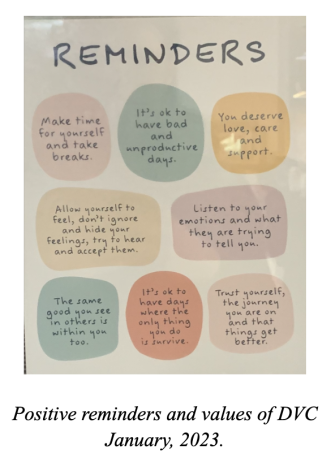 REMINDERS
Make time
for yourself
and take
breaks.
It's ok to
have bad
and
unproductive
days.
You deserve
love, care
and
support.
Allow yourself to
feel, don't ignore
and hide your
feelings, try to hear
and accept them.
Listen to your
emotions and what
they are trying
to tell you.
The same
good you see
in others is
within you
too.
It's ok to
have days
where the
only thing
you do
is survive.
Trust yourself,
the journey
you are on
and that
things get
better.
Positive reminders and values of DVC
January, 2023.